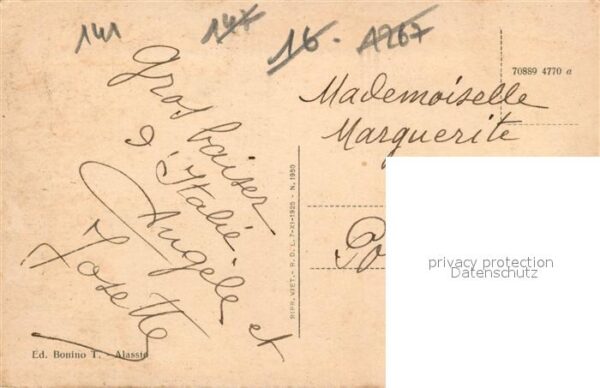 141
147
16.
A267
70889 4770 a
Gros baiser
d'Italie.
Angèle et
Josette
Mademoiselle
Marguerite
RIPR. VIET. - R. D. L. 7-XI-1925 - N. 1950
privacy protection
Datenschutz
Ed. Bonino T. - Alassio